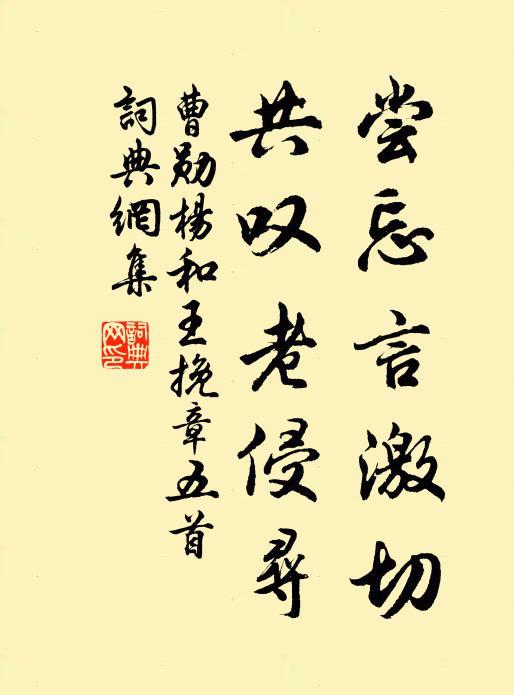 尝忘言激切
共叹老侵寻
曹勋杨和王挽章五首
詞典網集
詞典网印